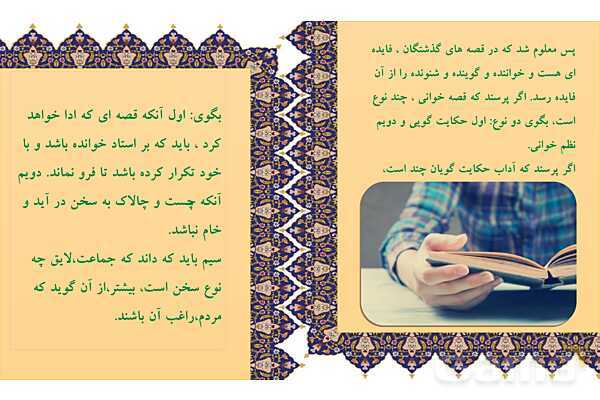 پس معلوم شد که در قصه های گذشتگان ، فایده
ای هست و خواننده و گوینده و شنونده را از آن
فایده رسد. اگر پرسند که قصه خوانی ، چند نوع
است، بگوی دو نوع: اول حکایت گویی و دویم
نظم خوانی.
اگر پرسند که آداب حکایت گویان چند است،
بگوی: اول آنکه قصه ای که ادا خواهد
کرد ، باید که بر استاد خوانده باشد و با
خود تکرار کرده باشد تا فرو نماند. دویم
آنکه چست و چالاک به سخن در آید و
خام نباشد.
سیم باید که داند که جماعت،لایق چه
نوع سخن است، بیشتر،از آن گوید که
مردم،راغب آن باشند.